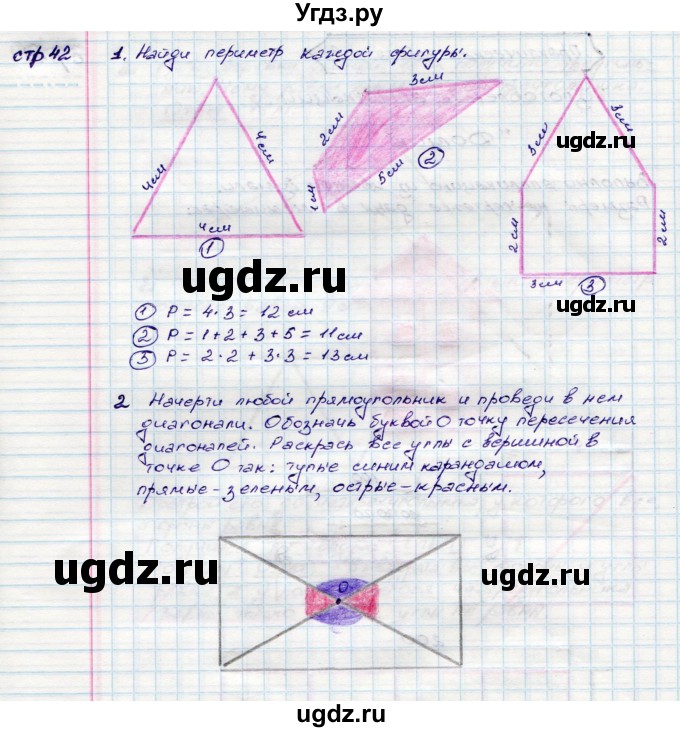 Угдз.ру
стр 42
1. Найди периметр каждой фигуры.
4см
4см
4см
1
3см
2см
1см
5см
2
3см
3см
2см
2см
3см
3
ugdz.ru
ugdz.ru
1 P = 4·3 = 12 см
2 P = 1+2+3+5 = 11см
3 P = 2·2 + 3·3 = 13см
2 Начерти любой прямоугольник и проведи в нем
диагонали. Обозначь буквой О точку пересечения
диагоналей. Раскрась все углы с вершиной в
точке О так: тупые синим карандашом,
прямые – зеленым, острые – красным.
О
ugdz.ru
ugdz.ru
ugdz.ru